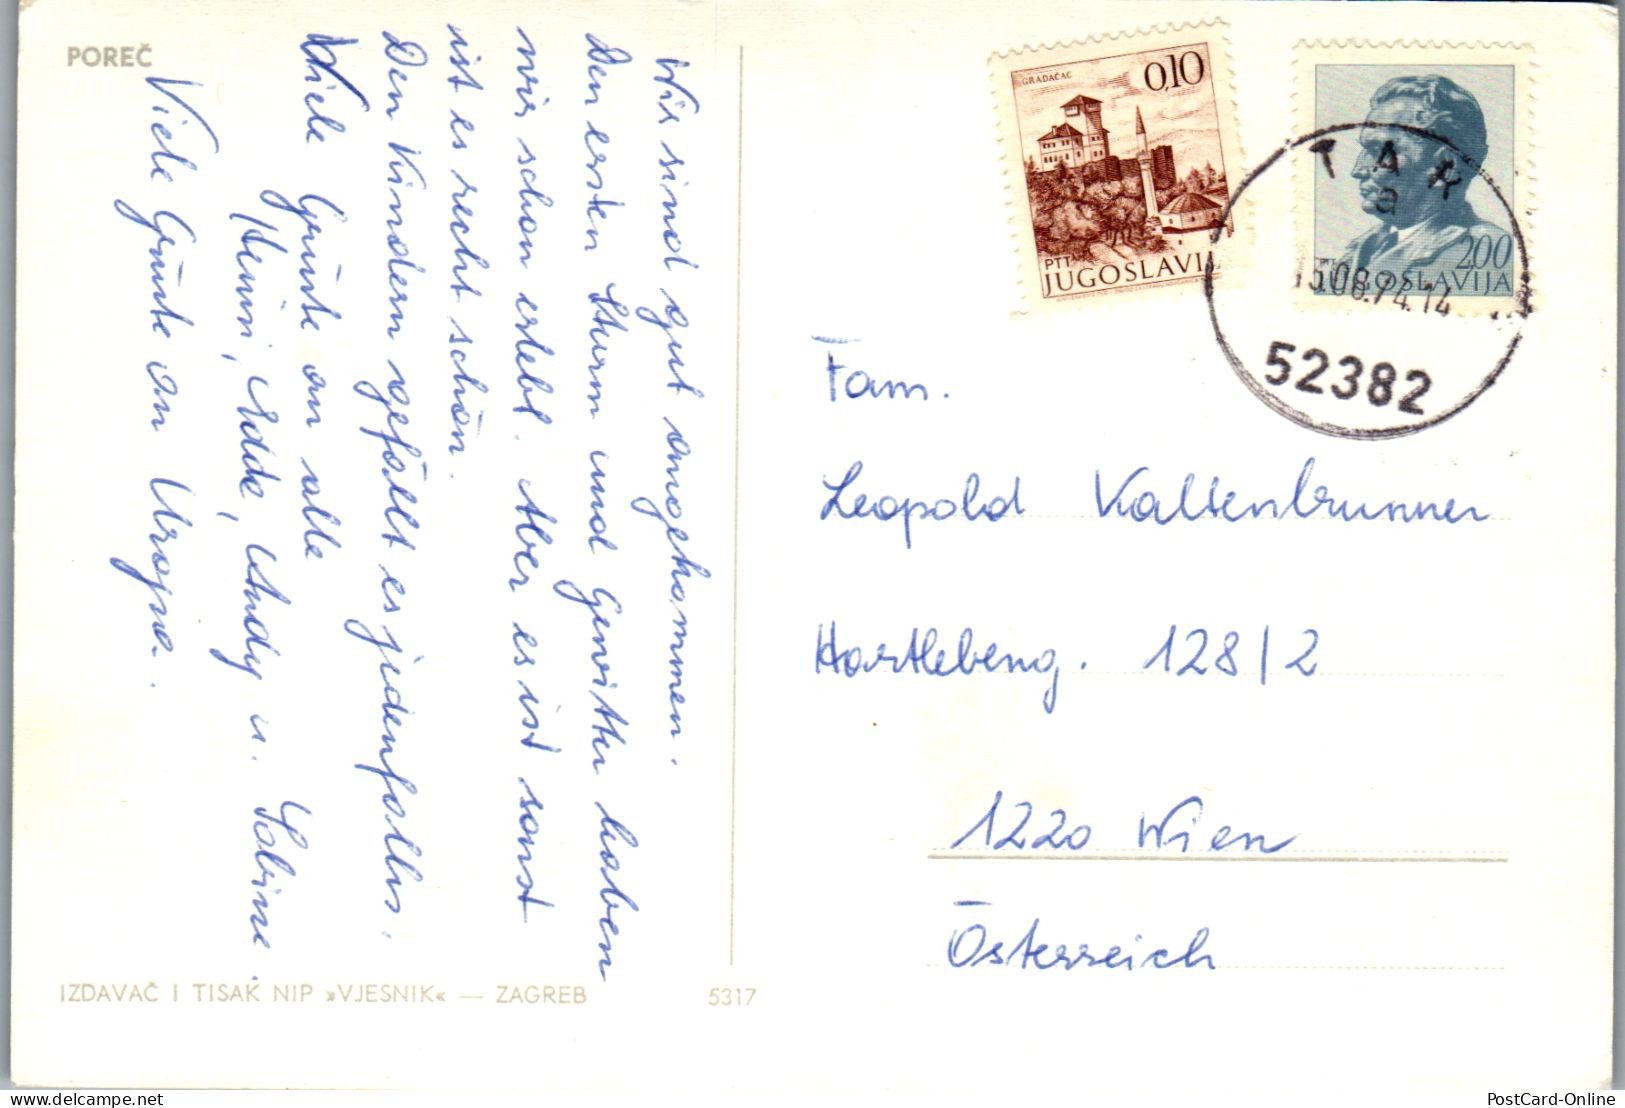 POREČ
Wir sind gut angekommen.
Den ersten Sturm und Gewitter haben
wir schon erlebt. Aber es ist sonst
ist es recht schön.
Den Kindern gefällt es jedenfalls.
Viele Grüße an alle
Henni, Edde, Andy u. Sabine.
Viele Grüße an
IZDAVAČ I TISAK NIP »VJESNIK« — ZAGREB
5317
GRADAČAC
0,10
PTT
JUGOSLAVIJA
2.00
JUGOSLAVIJA
TAR
a
15.08.74.14
52382
Fam.
Leopold Kaltenbrunner
Hartlebeng. 128/2
1220 Wien
Österreich
PostCard-Online